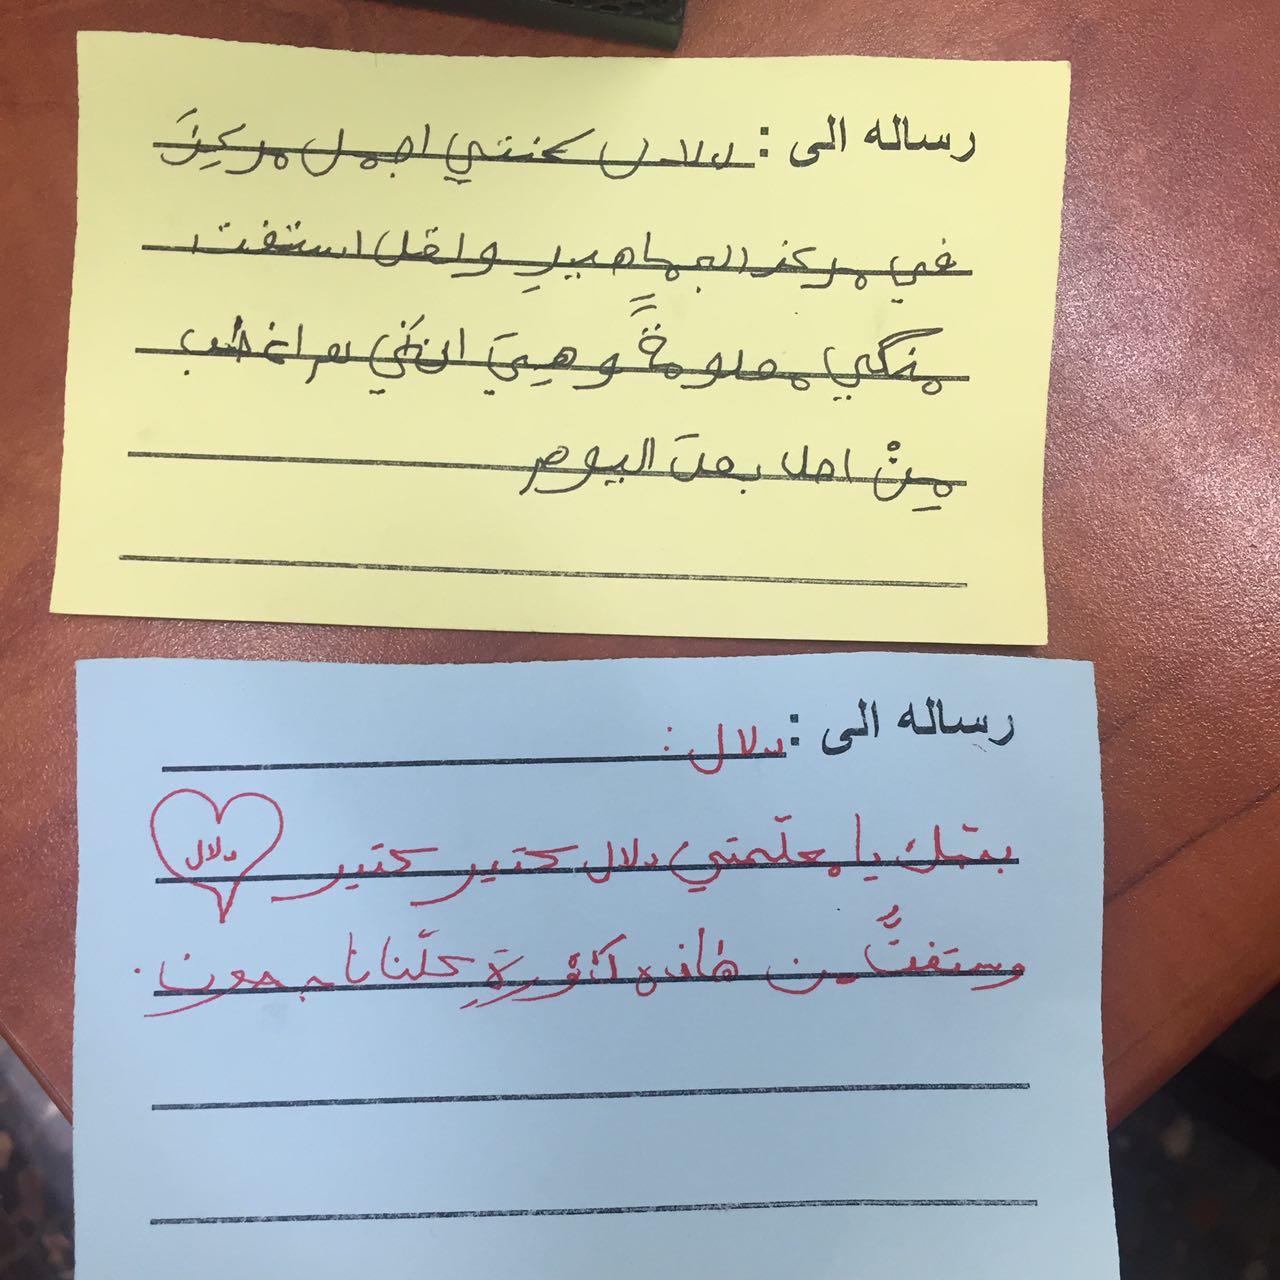 رساله الى : دلال كنتي اجمل مركِزَ
في مركز الجماهيرِ ولقد استفت
منكي معلومةً وهِيَ انني لم اغضب
مِنْ احد بعدَ اليوم
رساله الى : دلال :
بحبّك يا معلّمتي دلال كتير كتير
دلال
وستفتُّ من هاذه دَّوْرِةِ كلّنا ناجحون.